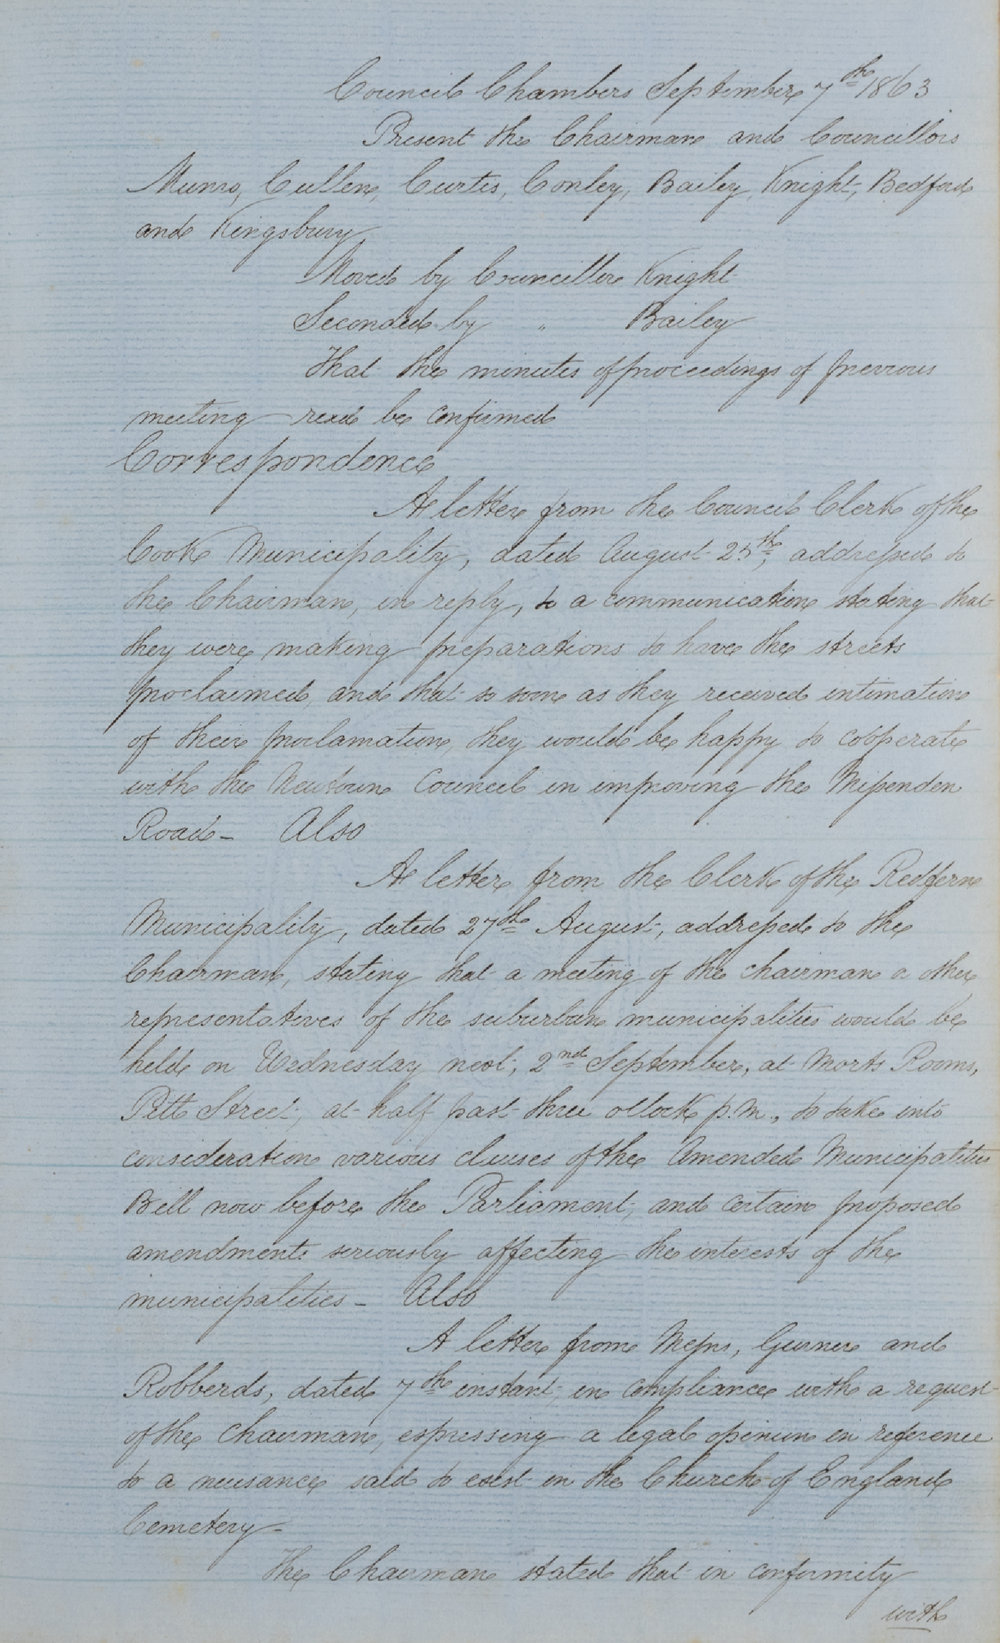 Council Chambers September 7th 1863
Present the Chairman and Councillors
Munro, Cullen, Curtis, Conley, Bailey, Knight, Bedford
and Kingsbury
Moved by Councillor Knight
Seconded by " Bailey
That the minutes of proceedings of previous
meeting read be confirmed
Correspondence
A letter from the Council Clerk of the
Cook Municipality, dated August 25th, addressed to
the Chairman, in reply, to a communication stating that
they were making preparations to have the streets
proclaimed, and that so soon as they received intimation
of their proclamation, they would be happy to cooperate
with the Newtown Council in improving the Missenden
Road - Also
A letter from the Clerk of the Redfern
Municipality, dated 27th August, addressed to the
Chairman, stating that a meeting of the chairman & other
representatives of the suburban municipalities would be
held on Wednesday next, 2nd September, at Morts Rooms,
Pitt Street at half past three o'clock p.m., to take into
consideration various clauses of the Amended Municipalities
Bill now before the Parliament, and certain proposed
amendments seriously affecting the interests of the
municipalities - Also
A letter from Messrs, Gurner and
Robberds, dated 7th instant, in compliance with a request
of the chairman, expressing a legal opinion in reference
to a nuisance said to exist in the Church of England
Cemetery -
The Chairman stated that in conformity
with